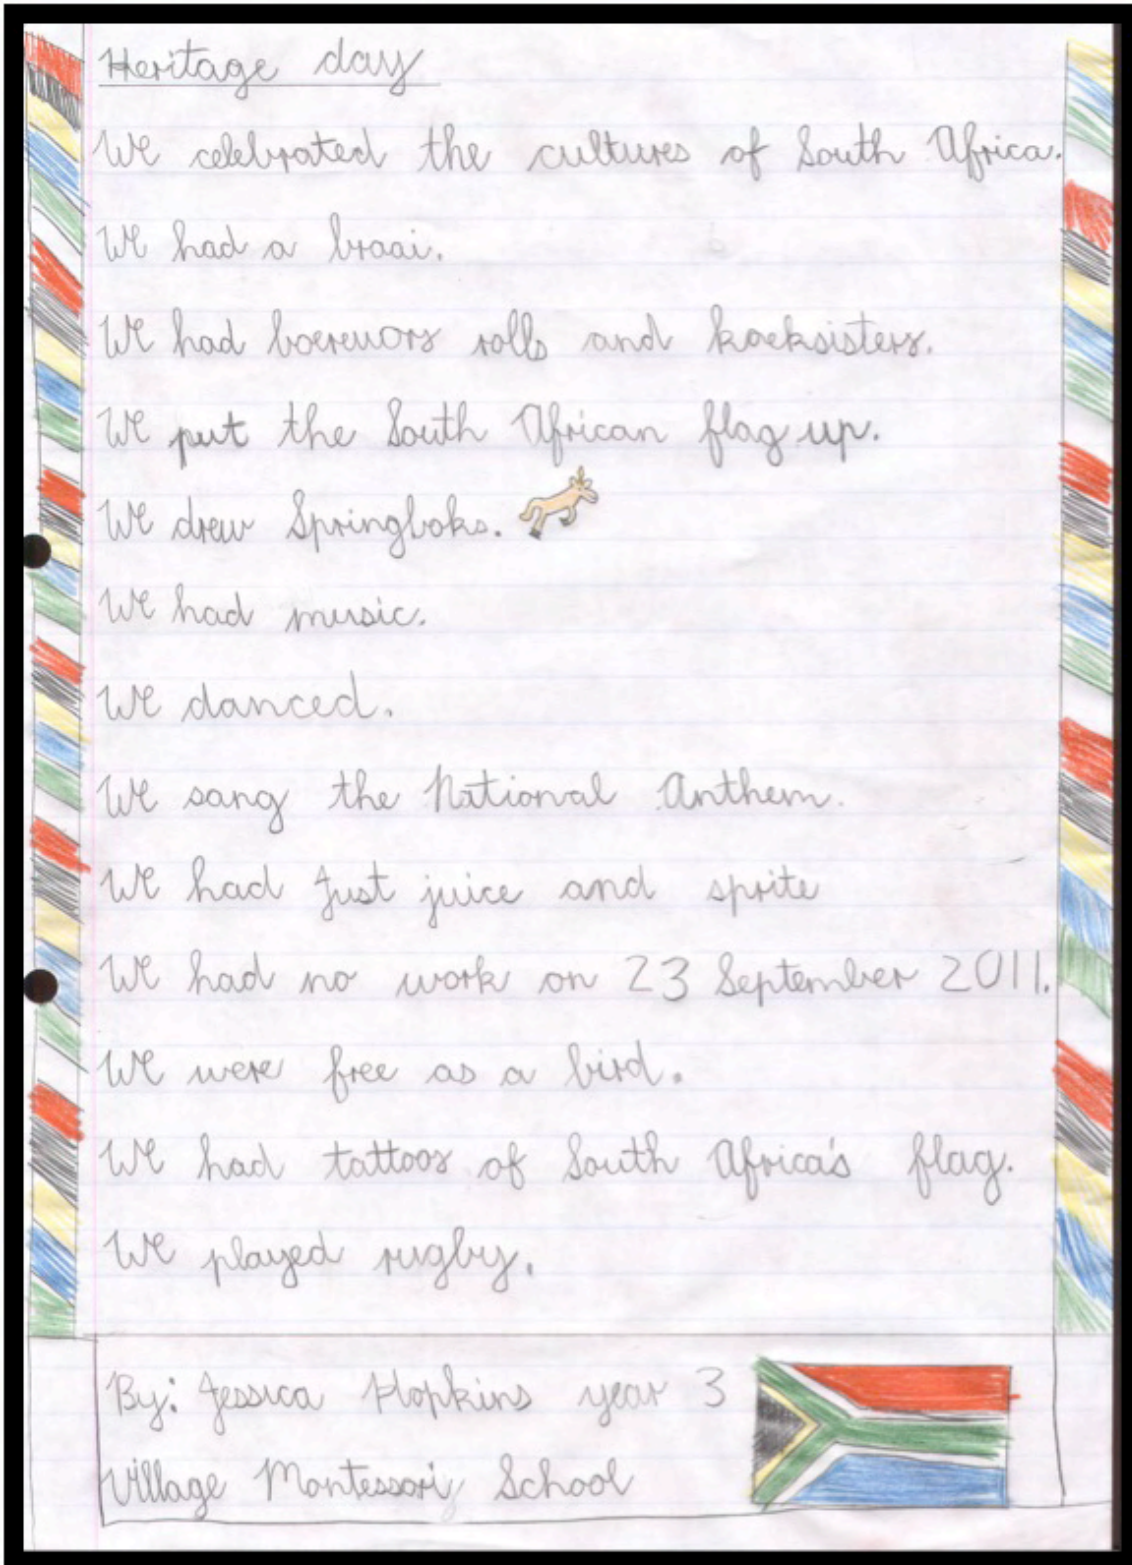 Heritage day
We celebrated the cultures of South Africa.
We had a braai.
We had boerewors rolls and koeksisters.
We put the South African flag up.
We drew Springboks.
We had music.
We danced.
We sang the National Anthem.
We had Just juice and sprite
We had no work on 23 September 2011.
We were free as a bird.
We had tattoos of South Africa's flag.
We played rugby.
By: Jessica Hopkins year 3
Village Montessori School